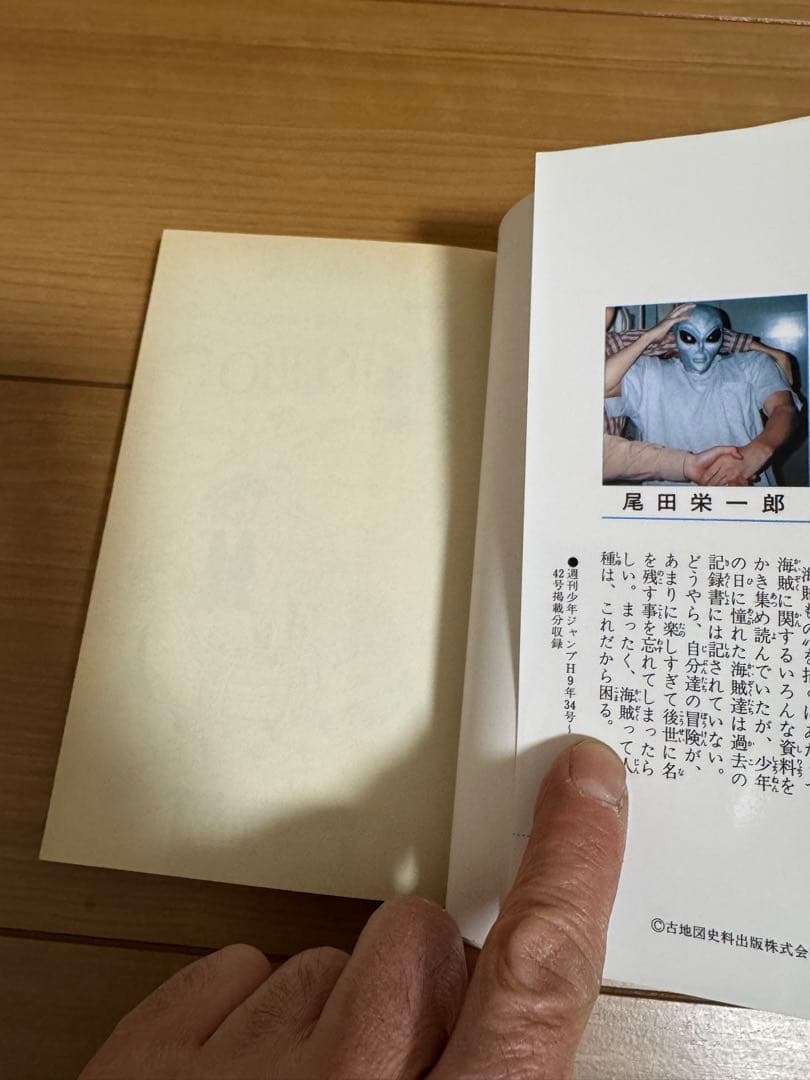 尾田栄一郎
海賊に関するいろんな資料を
かき集め読んでいたが、少年
の日に憧れた海賊達は過去の
記録書には記されていない。
どうやら、自分達の冒険が、
あまりに楽しすぎて後世に名
を残す事を忘れてしまったら
しい。まったく、海賊って人
種は、これだから困る。
●週刊少年ジャンプH9年34号〜
42号掲載分収録
©古地図史料出版株式会